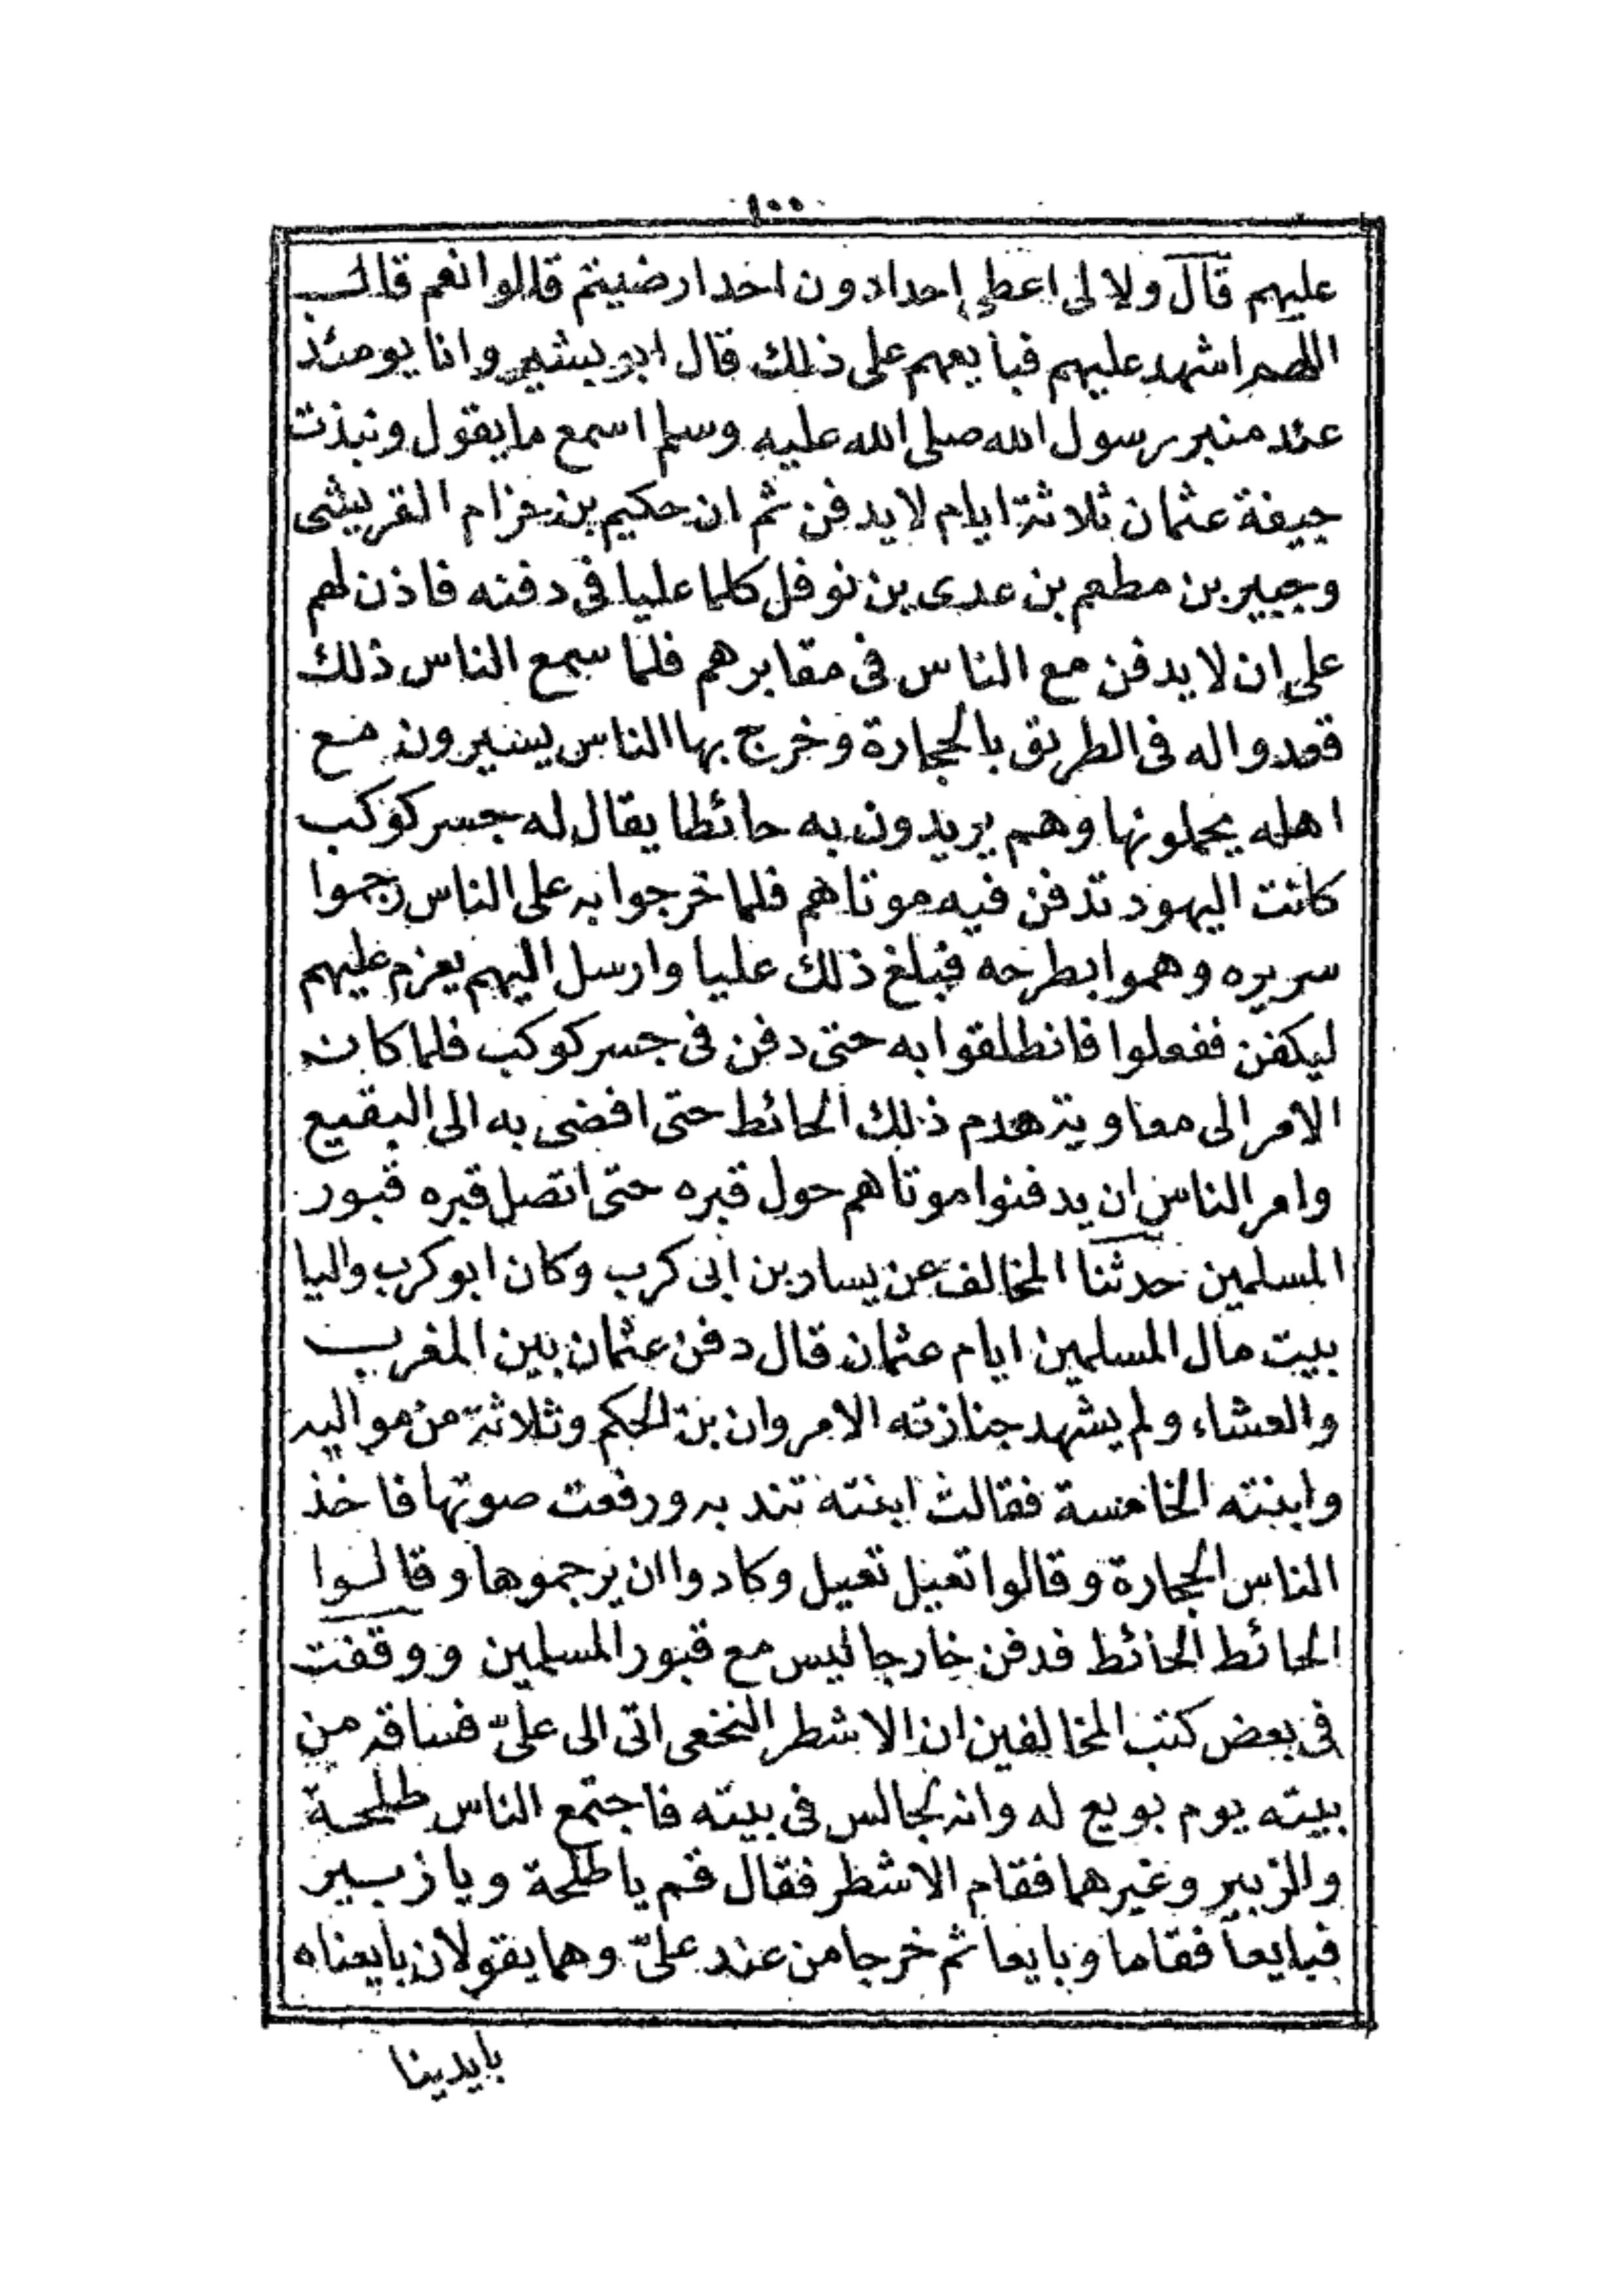 ١٠٠
عليهم قال ولا لى اعطى احدا دون احد ارضيتم قالوا نعم قال
اللهم اشهد عليهم فبايعهم على ذلك قال ابو بشير وانا يومئذ
عند منبر رسول الله صلى الله عليه وسلم اسمع ما يقول ونبذت
جيفة عثمان ثلاثة ايام لا يدفن ثم ان حكيم بن حزام القريشى
وجبير بن مطعم بن عدى بن نوفل كلما عليا فى دفنه فاذن لهم
على ان لا يدفن مع الناس فى مقابرهم فلما سمع الناس ذلك
قعدوا له فى الطريق بالحجارة وخرج بها الناس يسيرون مع
اهله يحملونها وهم يريدون به حائطا يقال له جسر كوكب
كانت اليهود تدفن فيه موتاهم فلما خرجوا به على الناس رجموا
سريره وهموا بطرحه فبلغ ذلك عليا وارسل اليهم يعزم عليهم
ليكفن ففعلوا فانطلقوا به حتى دفن فى جسر كوكب فلما كان
الامر الى معاوية هدم ذلك الحائط حتى افضى به الى البقيع
وامر الناس ان يدفنوا موتاهم حول قبره حتى اتصل قبره قبور
المسلمين حدثنا المخالف عن يسار بن ابى كرب وكان ابو كرب واليا
بيت مال المسلمين ايام عثمان قال دفن عثمان بين المغرب
والعشاء ولم يشهد جنازته الا مروان بن الحكم وثلاثة من مواليه
وابنته الخامسة فقالت ابنته تندبه ورفعت صوتها فاخذ
الناس الحجارة وقالوا نعيل نعيل وكادوا ان يرجموها وقالوا
الحائط الحائط فدفن خارجا ليس مع قبور المسلمين ووقفت
فى بعض كتب المخالفين ان الاشطر النخعى اتى الى علىّ فساقه من
بيته يوم بويع له وانه لجالس فى بيته فاجتمع الناس طلحة
والزبير وغيرهما فقام الاشطر فقال قم يا طلحة ويا زبير
فبايعا فقاما وبايعا ثم خرجا من عند علىّ وهما يقولان بايعناه
بايدينا